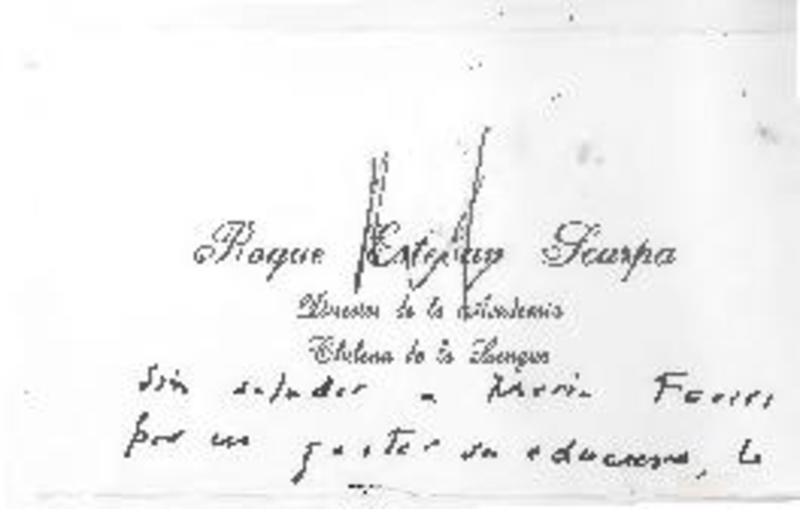 Roque Esteban Scarpa
Director de la Academia
Chilena de la Lengua
Sin saludar a María
por no gastar su educación, le